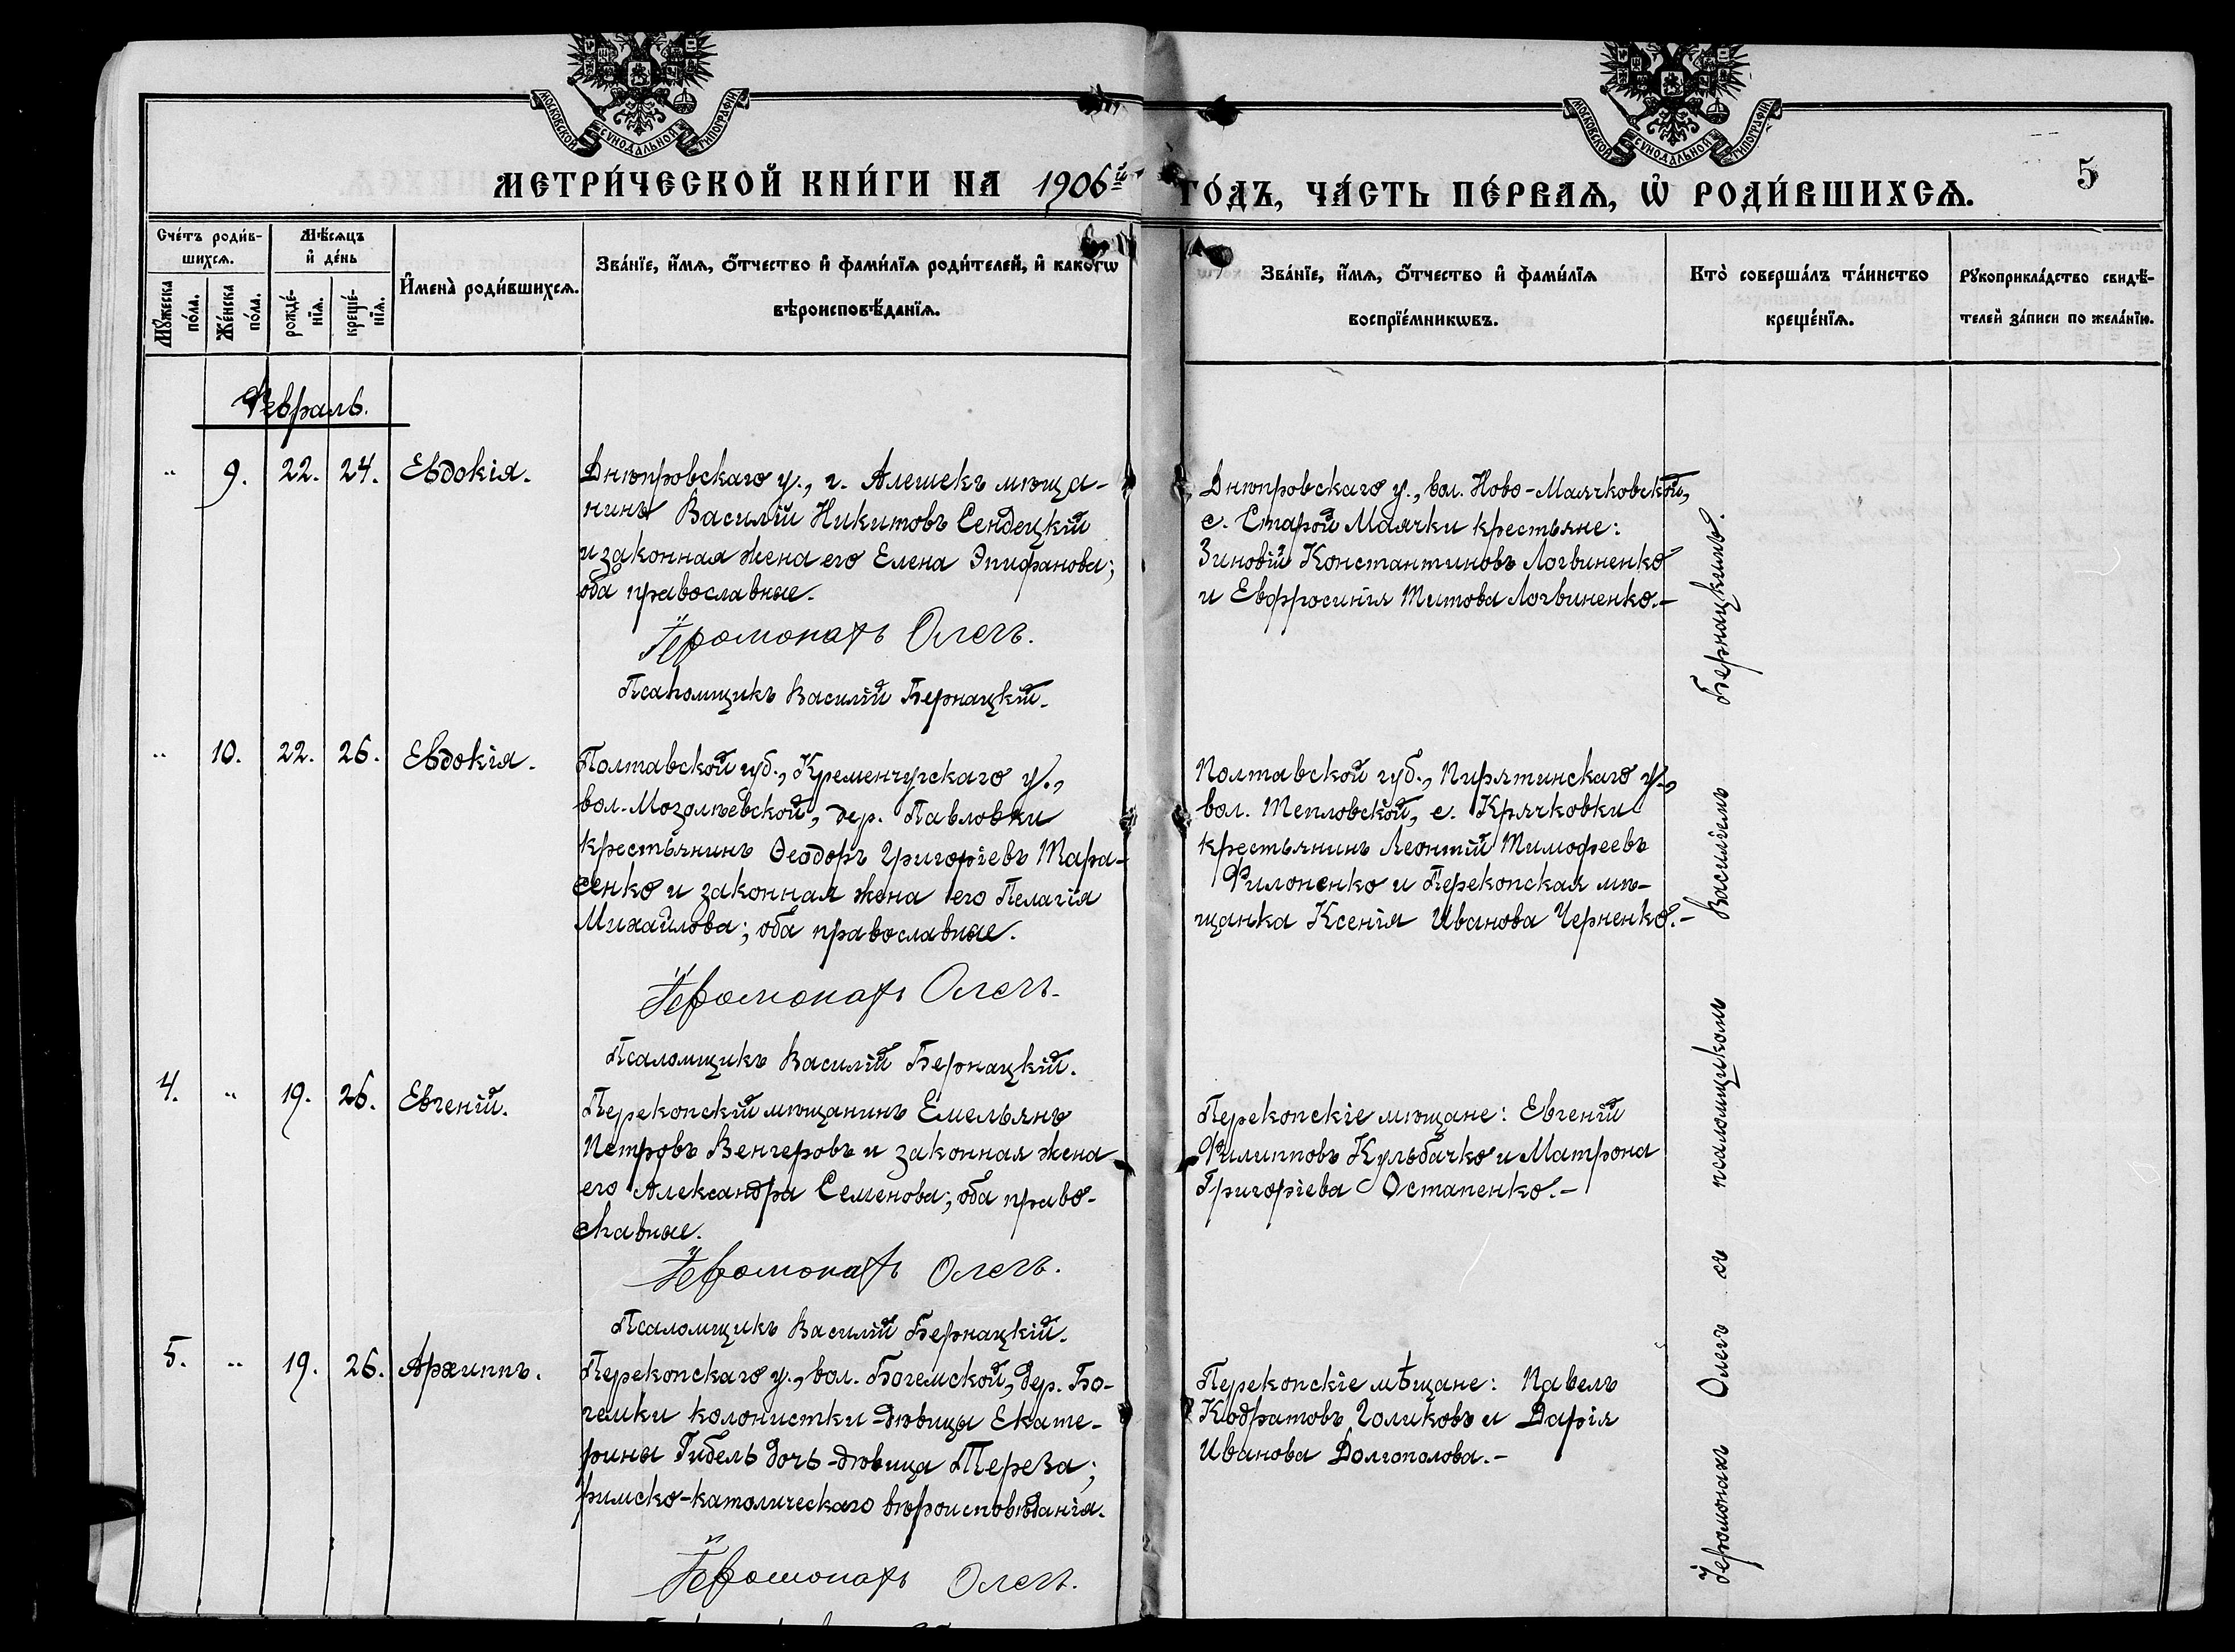 МОСКОВСКОЙ СУНОДАЛЬНОЙ ТИПОГРАФІИ
МОСКОВСКОЙ СУНОДАЛЬНОЙ ТИПОГРАФІИ
МЕТРИ́ЧЕСКОЙ КНИ́ГИ НА 1906й ГО́ДЪ, ЧА́СТЬ ПЕ́РВАѦ, Ѡ҆ РОДИ́ВШИХСѦ.
5
Сче́тъ роди́в-
шихсѧ.
Мѣ́сѧцъ
и҆ де́нь
И҆мена̀ роди́вшихсѧ.
Зва́нїе, и҆́мѧ, ѻ҆́тчество и҆ фами́лїѧ роди́телей, и҆ како́гѡ
вѣроисповѣ́данїѧ.
Зва́нїе, и҆́мѧ, ѻ҆́тчество и҆ фами́лїѧ
воспрїе́мникѡвъ.
Кто̀ соверша́лъ та́инство
креще́нїѧ.
Рꙋкоприкла́дство свидѣ́-
телей за́писи по жела́нїю.
Мꙋ́жеска
по́ла.
Же́нска
по́ла.
рожде́-
нїѧ.
креще́-
нїѧ.
Февраль.
" 9. 22. 24. Евдокія.
Днѣпровскаго у., г. Алешекъ мѣща-
нинъ Василій Никитовъ Сендецкій
и законная жена его Елена Эпифанова;
оба православные.
Іеромонахъ Олегъ.
Псаломщикъ Василій Бернацкій.
Днѣпровскаго у., вол. Ново-Маячковской,
с. Старой Маячки крестьяне:
Зиновій Константиновъ Логвиненко
и Евфросинія Титова Логвиненко.-
" 10. 22. 26. Евдокія.
Полтавской губ., Кременчугскаго у.,
вол. Мозолѣевской, дер. Павловки
крестьянинъ Ѳеодоръ Григоріевъ Тара-
сенко и законная жена его Пелагія
Михайлова; оба православные.
Іеромонахъ Олегъ.
Псаломщикъ Василій Бернацкій.
Полтавской губ., Пирятинскаго у.,
вол. Тепловской, с. Крячковки
крестьянинъ Леонтій Тимофеевъ
Филоненко и Перекопская мѣ-
щанка Ксенія Иванова Черненко.-
4. " 19. 26. Евгеній.
Перекопскій мѣщанинъ Емельянъ
Петровъ Венгеровъ и законная жена
его Александра Семенова; оба право-
славные.
Іеромонахъ Олегъ.
Псаломщикъ Василій Бернацкій.
Перекопскіе мѣщане: Евгеній
Филипповъ Кульбачко и Матрона
Григоріева Остапенко.-
5. " 19. 26. Архиппъ.
Перекопскаго у., вол. Богемской, дер. Бо-
гемки колонистки-дѣвицы Екате-
рины Гибель дочь-дѣвица Тереза;
римско-католическаго вѣроисповѣданія.
Іеромонахъ Олегъ.
Перекопскіе мѣщане: Павелъ
Кодратовъ Голиковъ и Дарія
Иванова Долгополова.-
Іеромонахъ Олегъ съ псаломщикомъ Василіемъ Бернацкимъ.